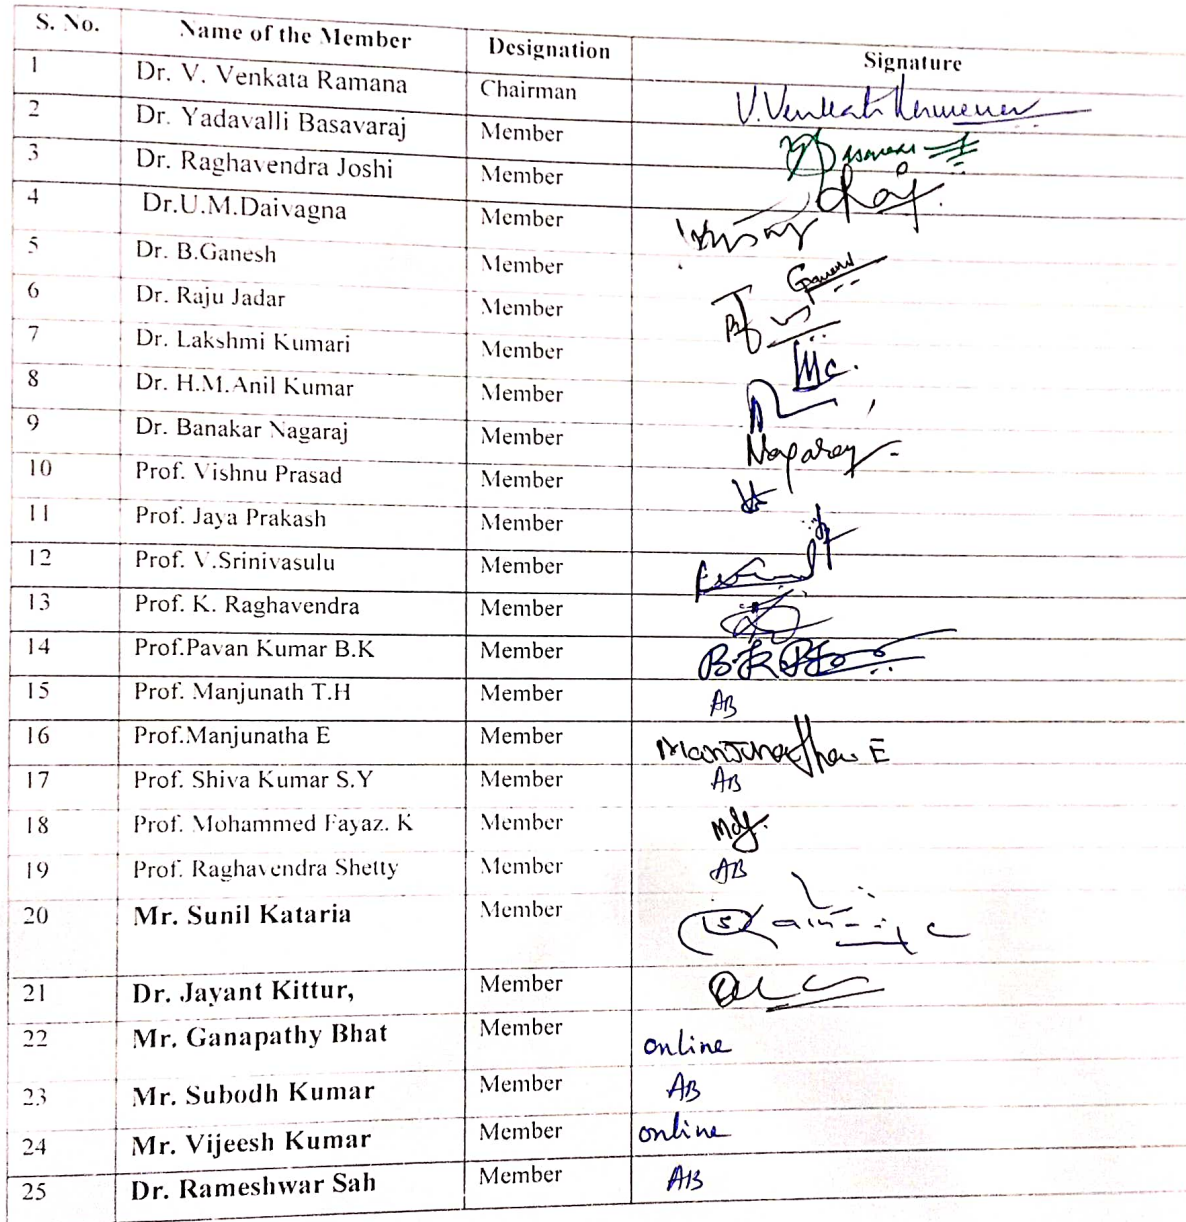 S. No. Name of the Member Designation Signature
1 Dr. V. Venkata Ramana Chairman V.Venkata Ramana
2 Dr. Yadavalli Basavaraj Member
3 Dr. Raghavendra Joshi Member
4 Dr.U.M.Daivagna Member
5 Dr. B.Ganesh Member Ganesh
6 Dr. Raju Jadar Member
7 Dr. Lakshmi Kumari Member
8 Dr. H.M.Anil Kumar Member
9 Dr. Banakar Nagaraj Member Nagaraj
10 Prof. Vishnu Prasad Member
11 Prof. Jaya Prakash Member
12 Prof. V.Srinivasulu Member
13 Prof. K. Raghavendra Member
14 Prof.Pavan Kumar B.K Member
15 Prof. Manjunath T.H Member AB
16 Prof.Manjunatha E Member Manjunatha E
17 Prof. Shiva Kumar S.Y Member AB
18 Prof. Mohammed Fayaz. K Member
19 Prof. Raghavendra Shetty Member AB
20 Mr. Sunil Kataria Member
21 Dr. Jayant Kittur, Member
22 Mr. Ganapathy Bhat Member online
23 Mr. Subodh Kumar Member AB
24 Mr. Vijeesh Kumar Member online
25 Dr. Rameshwar Sah Member AB